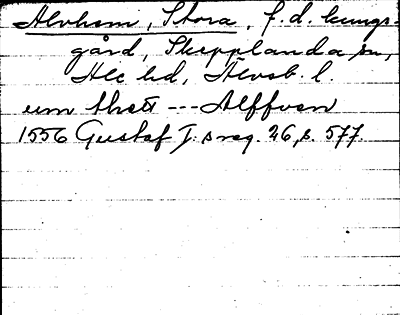 Alvhem, Stora, f.d. kungs-
gård, Skepplanda sn,
Ale hd, Älvsb. l.
um thet --- Alffvem
1556 Gustaf I:s reg. 26, s. 577.